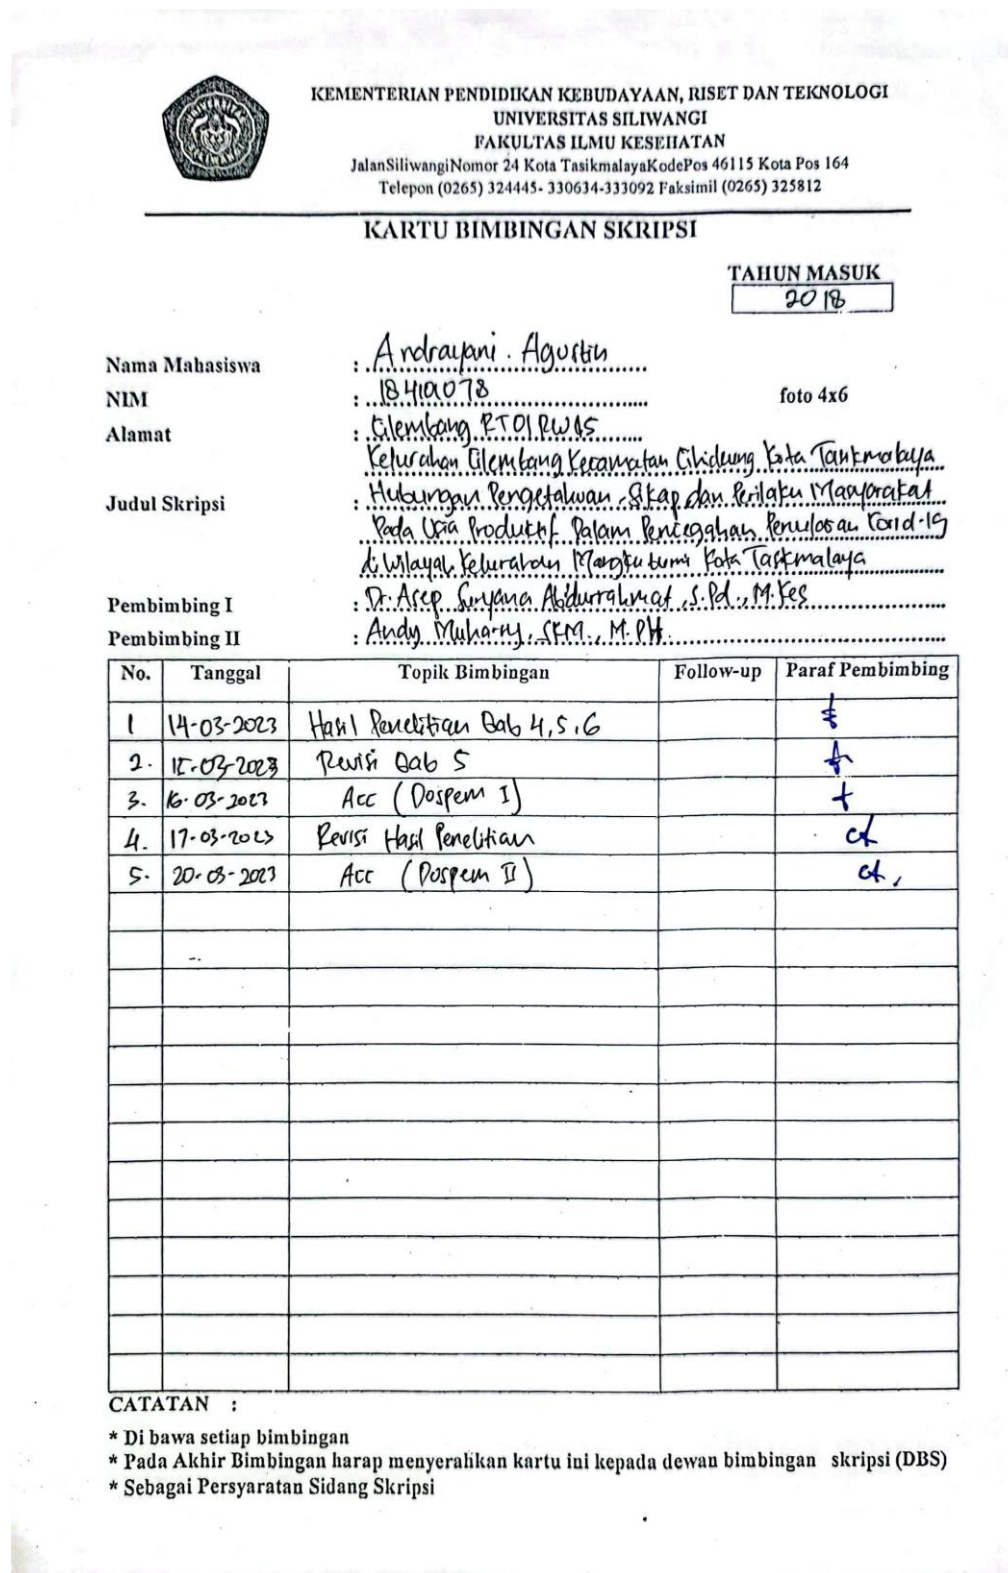 KEMENTERIAN PENDIDIKAN KEBUDAYAAN, RISET DAN TEKNOLOGI
UNIVERSITAS SILIWANGI
FAKULTAS ILMU KESEHATAN
JalanSiliwangiNomor 24 Kota TasikmalayaKodePos 46115 Kota Pos 164
Telepon (0265) 324445- 330634-333092 Faksimil (0265) 325812
KARTU BIMBINGAN SKRIPSI
TAHUN MASUK
2018
Nama Mahasiswa : Andrayani . Agustin
NIM :
foto 4x6
Alamat : Cilembang RT01 RW05
Kelurahan Cilembang Kecamatan Cihideung Kota Tasikmalaya
Judul Skripsi : Hubungan Pengetahuan, Sikap dan Perilaku Masyarakat
Pada Usia Produktif Dalam Pencegahan Penularan Covid-19
di Wilayah Kelurahan Mangkubumi Kota Tasikmalaya
Pembimbing I : Dr. Asep Suryana Abdurrahmat, S.Pd., M.Kes
Pembimbing II : Andy Muharry, SKM., M.PH.
No. Tanggal Topik Bimbingan Follow-up Paraf Pembimbing
1 14-03-2023 Hasil Penelitian Bab 4, 5, 6
2. 15-03-2023 Revisi Bab 5
3. 16-03-2023 Acc (Dospem I)
4. 17-03-2023 Revisi Hasil Penelitian
5. 20-03-2023 Acc (Dospem II)
CATATAN :
* Di bawa setiap bimbingan
* Pada Akhir Bimbingan harap menyerahkan kartu ini kepada dewan bimbingan skripsi (DBS)
* Sebagai Persyaratan Sidang Skripsi